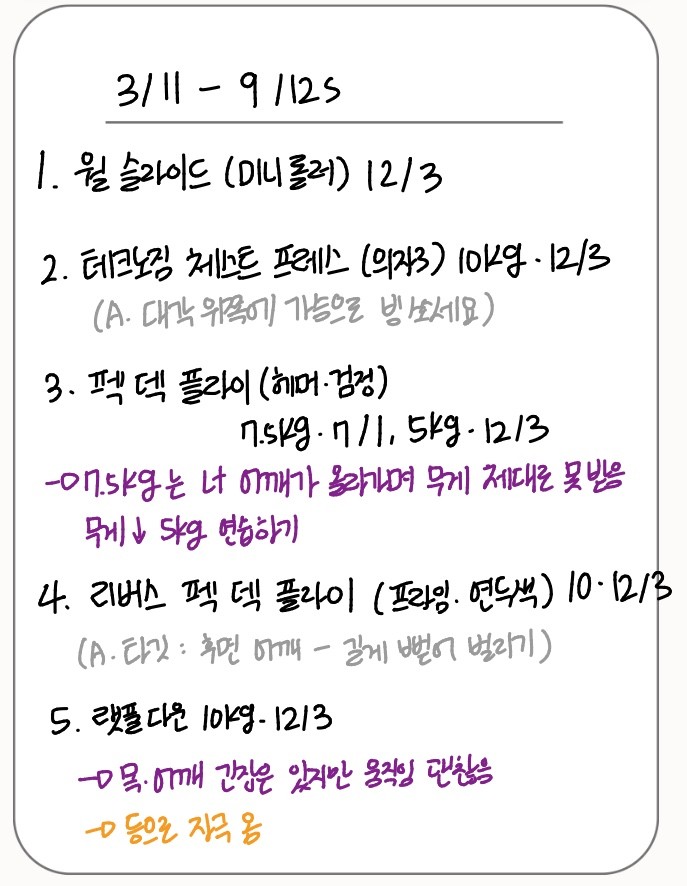 3/11 - 9/12s
1. 월 슬라이드 (미니롤러) 12/3
2. 테크노짐 체스트 프레스 (의자3) 10kg · 12/3
(A. 대각 위쪽에 가슴으로 빔 쏘세요)
3. 펙 덱 플라이 (헤머·검정)
7.5kg · 7/1, 5kg · 12/3
→ 7.5kg는 너 어깨가 올라가며 무게 제대로 못 받음
무게↓ 5kg 연습하기
4. 리버스 펙 덱 플라이 (프라임. 연두색) 10 · 12/3
(A. 타깃 : 후면 어깨 - 길게 뻗어 벌리기)
5. 랫풀다운 10kg - 12/3
→ 목·어깨 간섭은 있지만 움직임 괜찮음
→ 등으로 자극 옴